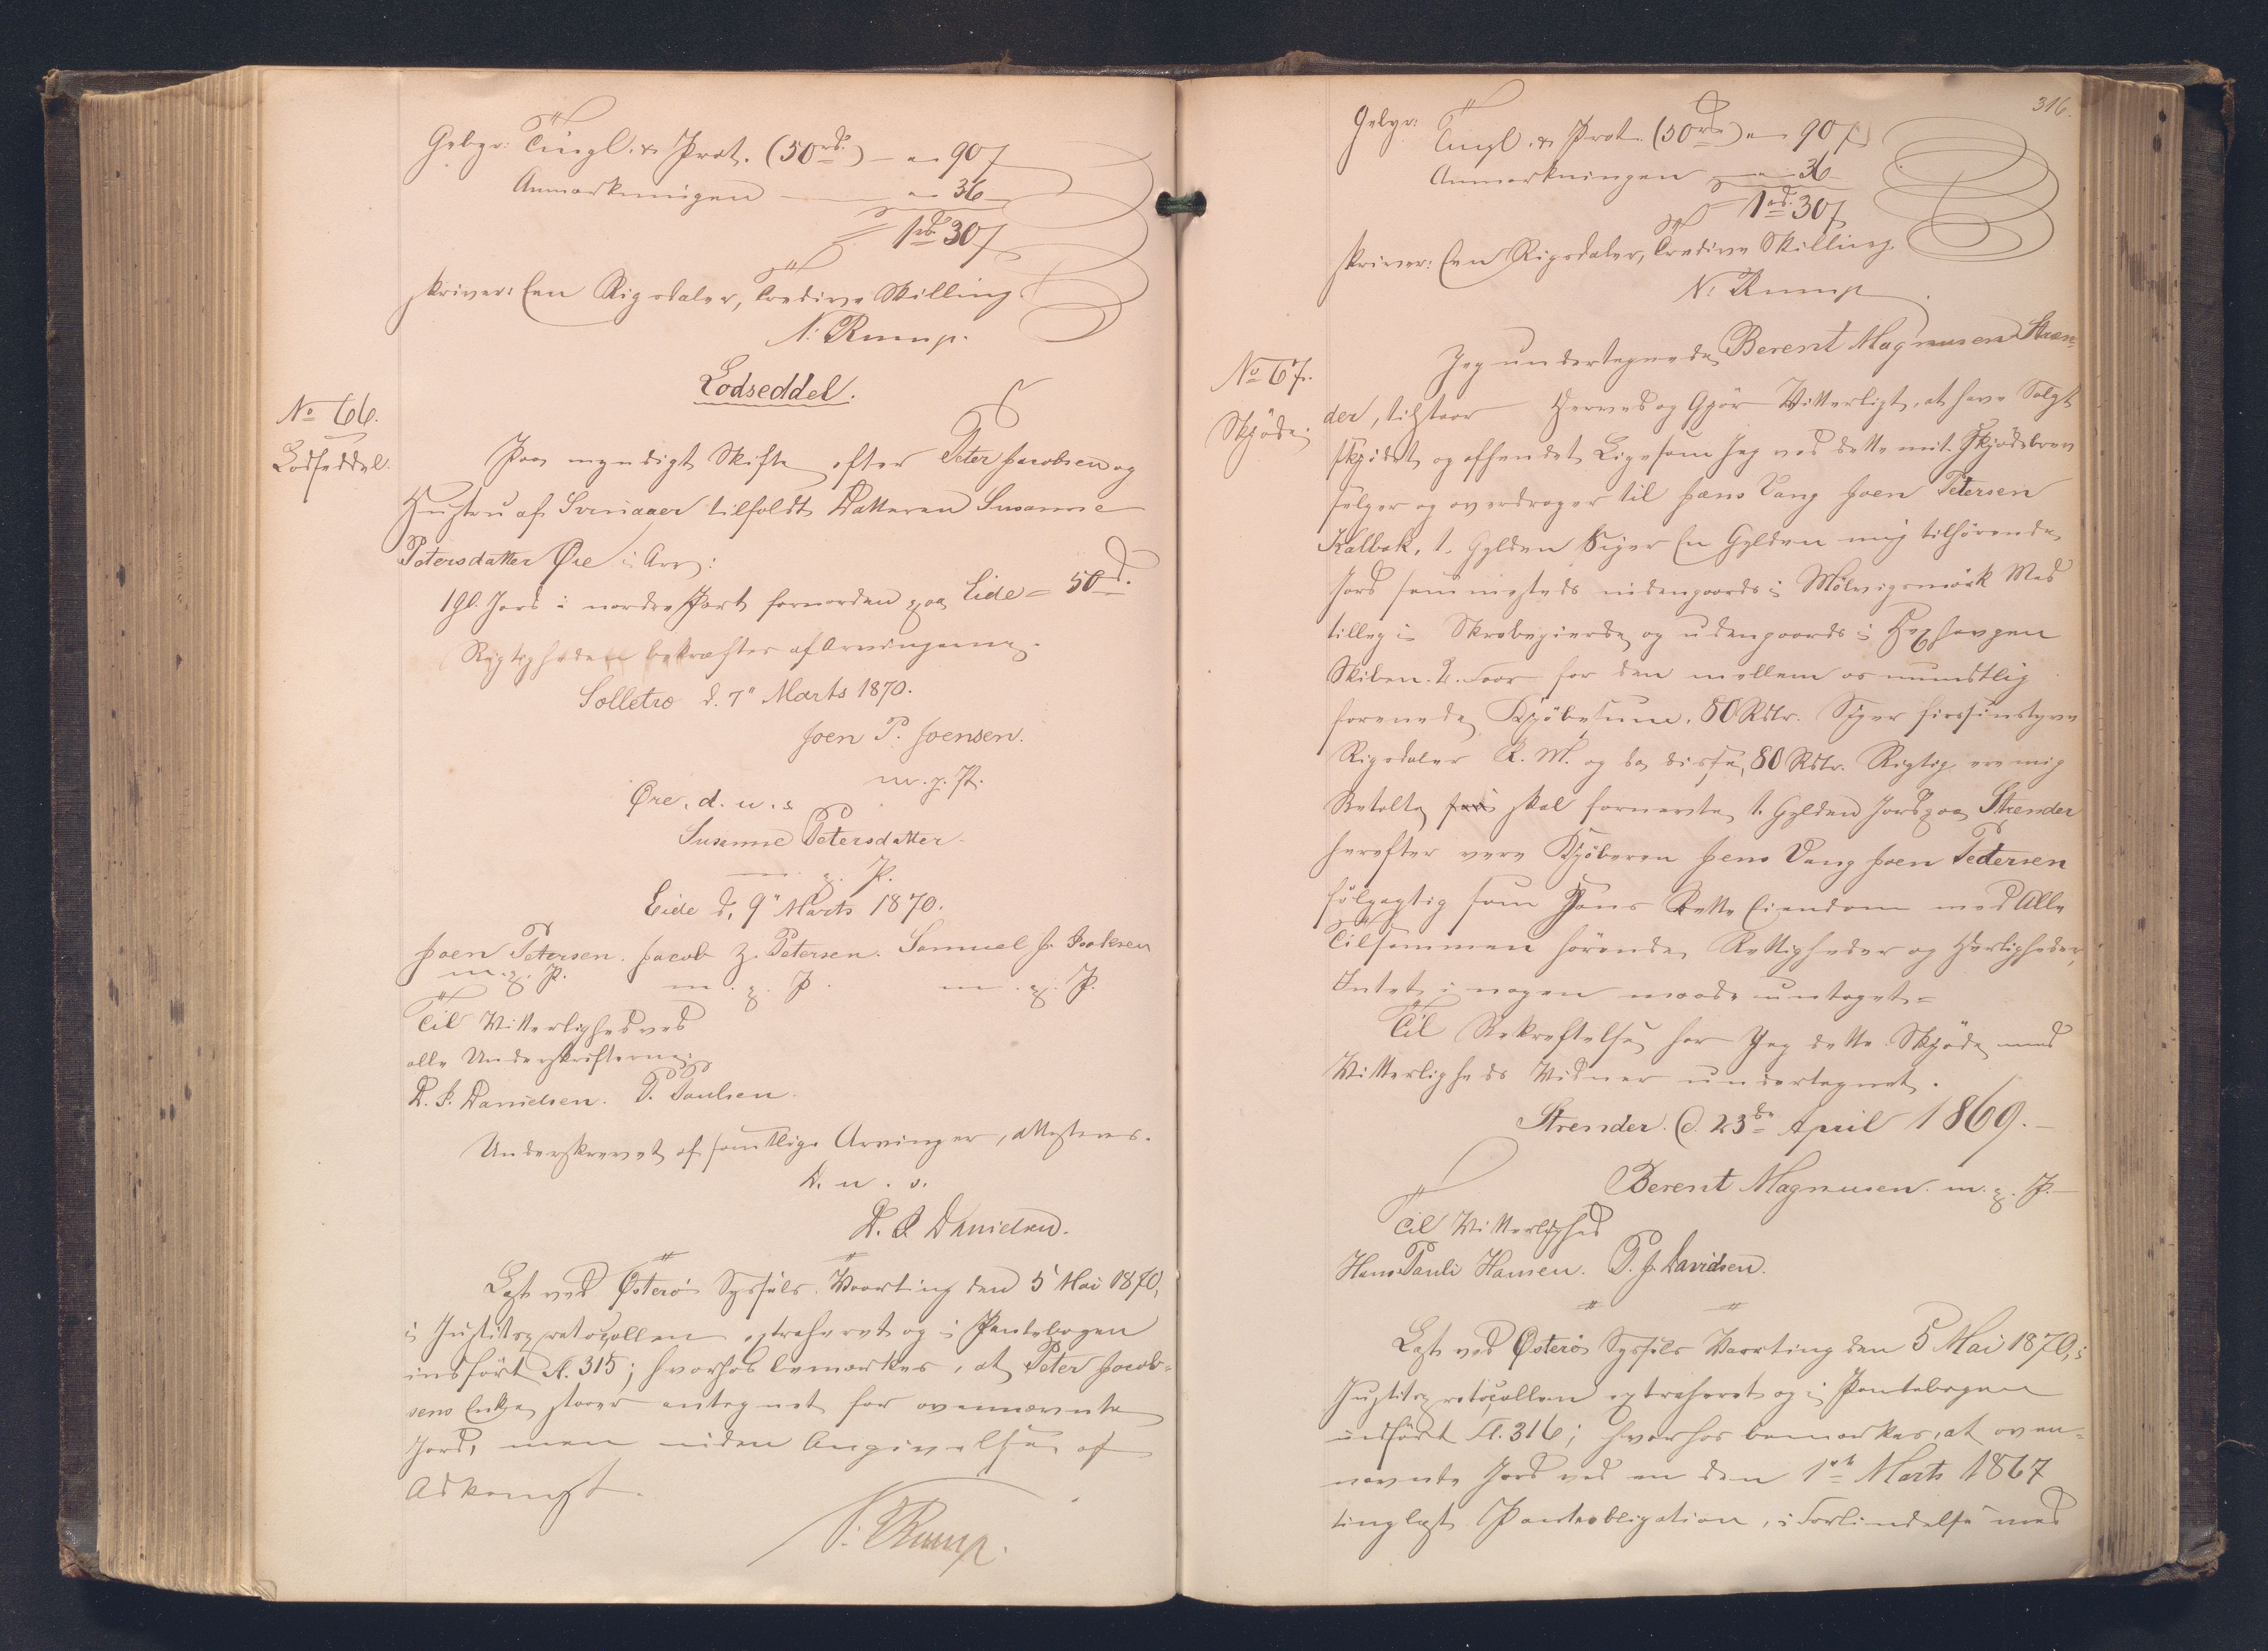 Gebyr: Tingl. & Prot. (50rd.) — " 90 ß
Anmærkningen — " 36
1rd. 30 ß
skriver: Een Rigsdaler, Tredive Skilling
N. Rump.
Lodseddel.
No 66.
Lodseddel.
Paa myndigt Skifte efter Peter Jacobsen og
Hustru af Svinaaer tilfaldt Datteren Susanne
Petersdatter Øre i Arv:
1 Gl. Jord i nordre Part fornorden paa Eide = 50 d.
Rigtigheden bekræftes af Arvingerne.
Solletrø d. 7" Marts 1870.
Joen P. Joensen.
m. p. P.
Øre, d. u. s.
Susanne Petersdatter
— p. P.
Eide d. 9" Marts 1870.
Joen Petersen. Jacob Z. Petersen. Samuel J. Isaksen
m. p. P. m. p. P. m. p. P.
Til Vitterlighed ved
alle Underskrifterne:
D. P. Danielsen. P. Poulsen.
Underskrevet af samtlige Arvinger, attesteres.
D. u. s.
D. P. Danielsen.
Læst ved Østerø Syssels Vaarting den 5 Mai 1870,
i Justitsprotocollen extraheret og i Pantebogen
indført Fl. 315; hvorhos bemærkes, at Peter Jacob-
sens Enke staaer antegnet for ovennævnte
Jord, men uden Angivelse af
Adkomst.
N. Rump.
316.
Gebyr: Tingl. & Prot. (50rd.) " 90 ß
Anmærkningen — " 36
1rd. 30 ß
skriver: Een Rigsdaler, Tredive Skilling.
N. Rump
No 67.
Skjøde.
Jeg undertegnede Berent Magnusen Stræn-
der, tilstaar Herved og Gjör Vitterligt, at have Solgt
skjödet og afhendet Ligesom Jeg ved dette mit Skjödebrev
sælger og overdrager til Jens Vang Joen Petersen
Kalbak, 1. Gylden Siger En Gylden mig tilhörende
Jord sammesteds indengaards i Mölvigsmörk Med
tillæg i Skrobegierde og udengaards i Hexhavgen
Skiben. 2. Foer for den mellem os mundtlig
forenede Kjöbesum. 80 Rdlr. Siger firsindstyve
Rigsdaler R. M. og da disse 80 Rdlr. Rigtig ere mig
Betalte skal fornevnte 1. Gylden Jord paa Strender
herefter vere Kjöberen Jens Vang Joen Pedersen
fölgagtig som Hans Rette Eiendom med Alle
Tilsammen hörende Rettigheder og Herligheder,
Intet i nogen maade undtaget =
Til Bekreftelse har Jeg dette Skjöde med
Vitterligheds Vidner undertegnet.
Strender. D. 23de April 1869.
Berent Magnusen. m. p. P.
Til Vitterlighed
Hans Pauli Hansen. P. J. Davidsen.
Læst ved Østerø Syssels Vaarting den 5 Mai 1870, i
Justitsprotocollen extraheret og i Pantebogen
indført Fl. 316; hvorhos bemærkes, at oven-
nævnte Jord ved en den 1ste Marts 1867
tinglæst Panteobligation, i Forbindelse med